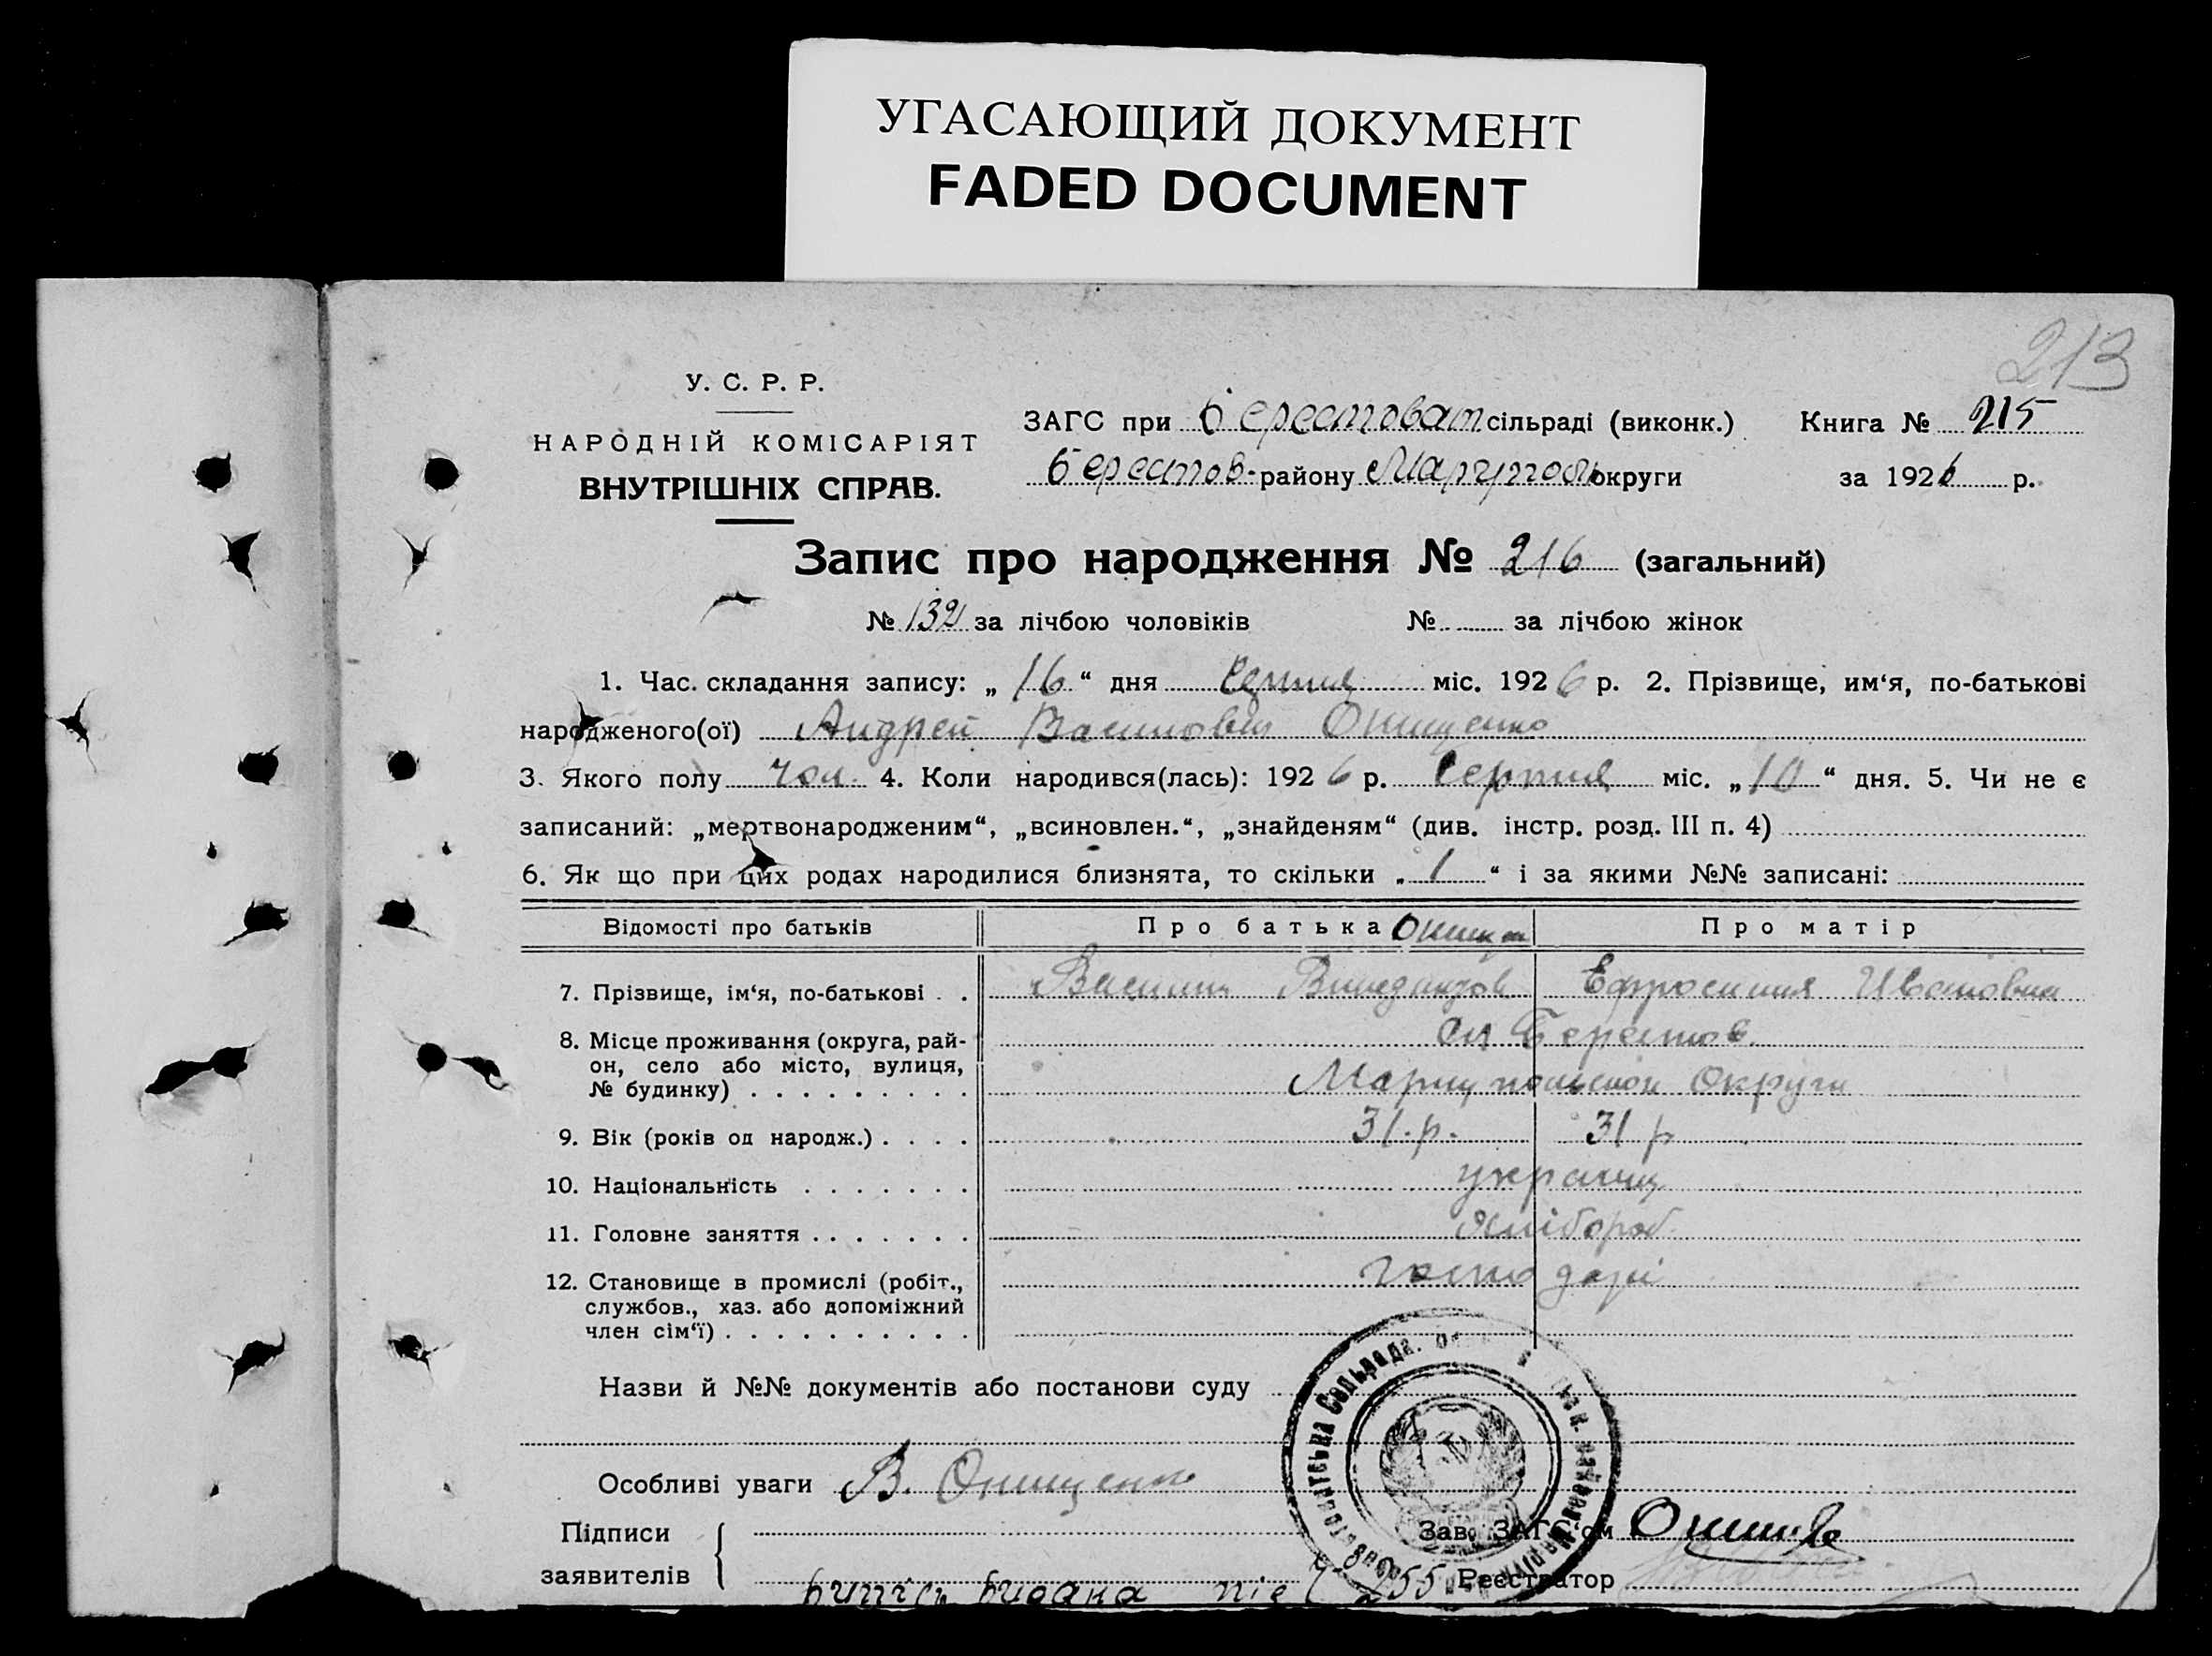 УГАСАЮЩИЙ ДОКУМЕНТ
FADED DOCUMENT
213
У. С. Р. Р.
НАРОДНІЙ КОМІСАРІЯТ
ВНУТРІШНІХ СПРАВ.
ЗАГС при Берестоват сільраді (виконк.) Книга № 215
Берестов- району Маріупол округи за 1926 р.
Запис про народження № 216 (загальний)
№ 132 за лічбою чоловіків № за лічбою жінок
1. Час. складання запису: „ 16 “ дня Серпня міс. 1926 р. 2. Прізвище, им‘я, по-батькові
народженого(ої) Андрей Василовіч Онищенко
3. Якого полу чол. 4. Коли народився(лась): 1926 р. Серпня міс. „ 10 “ дня. 5. Чи не є
записаний: „мертвонародженим“, „всиновлен.“, „знайденям“ (див. інстр. розд. III п. 4)
6. Як що при цих родах народилися близнята, то скільки „ 1 “ і за якими №№ записані:
Відомості про батьків Про батька Про матір
7. Прізвище, ім‘я, по-батькові Ефросиния Ивановна
8. Місце проживання (округа, рай-
он, село або місто, вулиця,
№ будинку)
с. Берестов.
Мариупольской Округи
9. Вік (років од народж.) 31. р. 31 р
10. Національність украинц
11. Головне заняття хлібороб.
12. Становище в промислі (робіт.,
службов., хаз. або допоміжний
член сім‘ї)
господарі
Назви й №№ документів або постанови суду
Особливі уваги В. Онищенко
Підписи
заявителів
Зав. ЗАГС‘ом
Реєстратор
Сельрада.